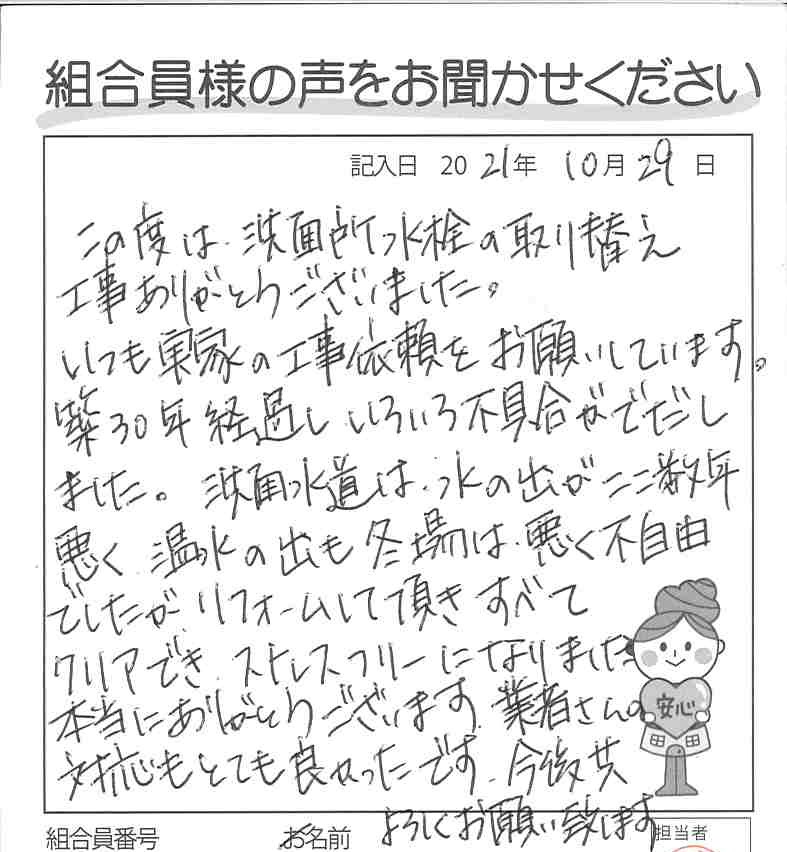 組合員様の声をお聞かせください
記入日 2021年 10月29日
この度は、洗面所水栓の取り替え
工事ありがとうございました。
いつも実家の工事依頼をお願いしています。
築30年経過しいろいろ不具合がでだし
ました。洗面水道は、水の出がここ数年
悪く、温水の出も冬場は、悪く不自由
でしたが、リフォームして頂きすべて
クリアでき、ストレスフリーになりました
本当にありがとうございます。業者さんの
対応もとても良かったです。今後共
よろしくお願い致します
安心
組合員番号 お名前 担当者